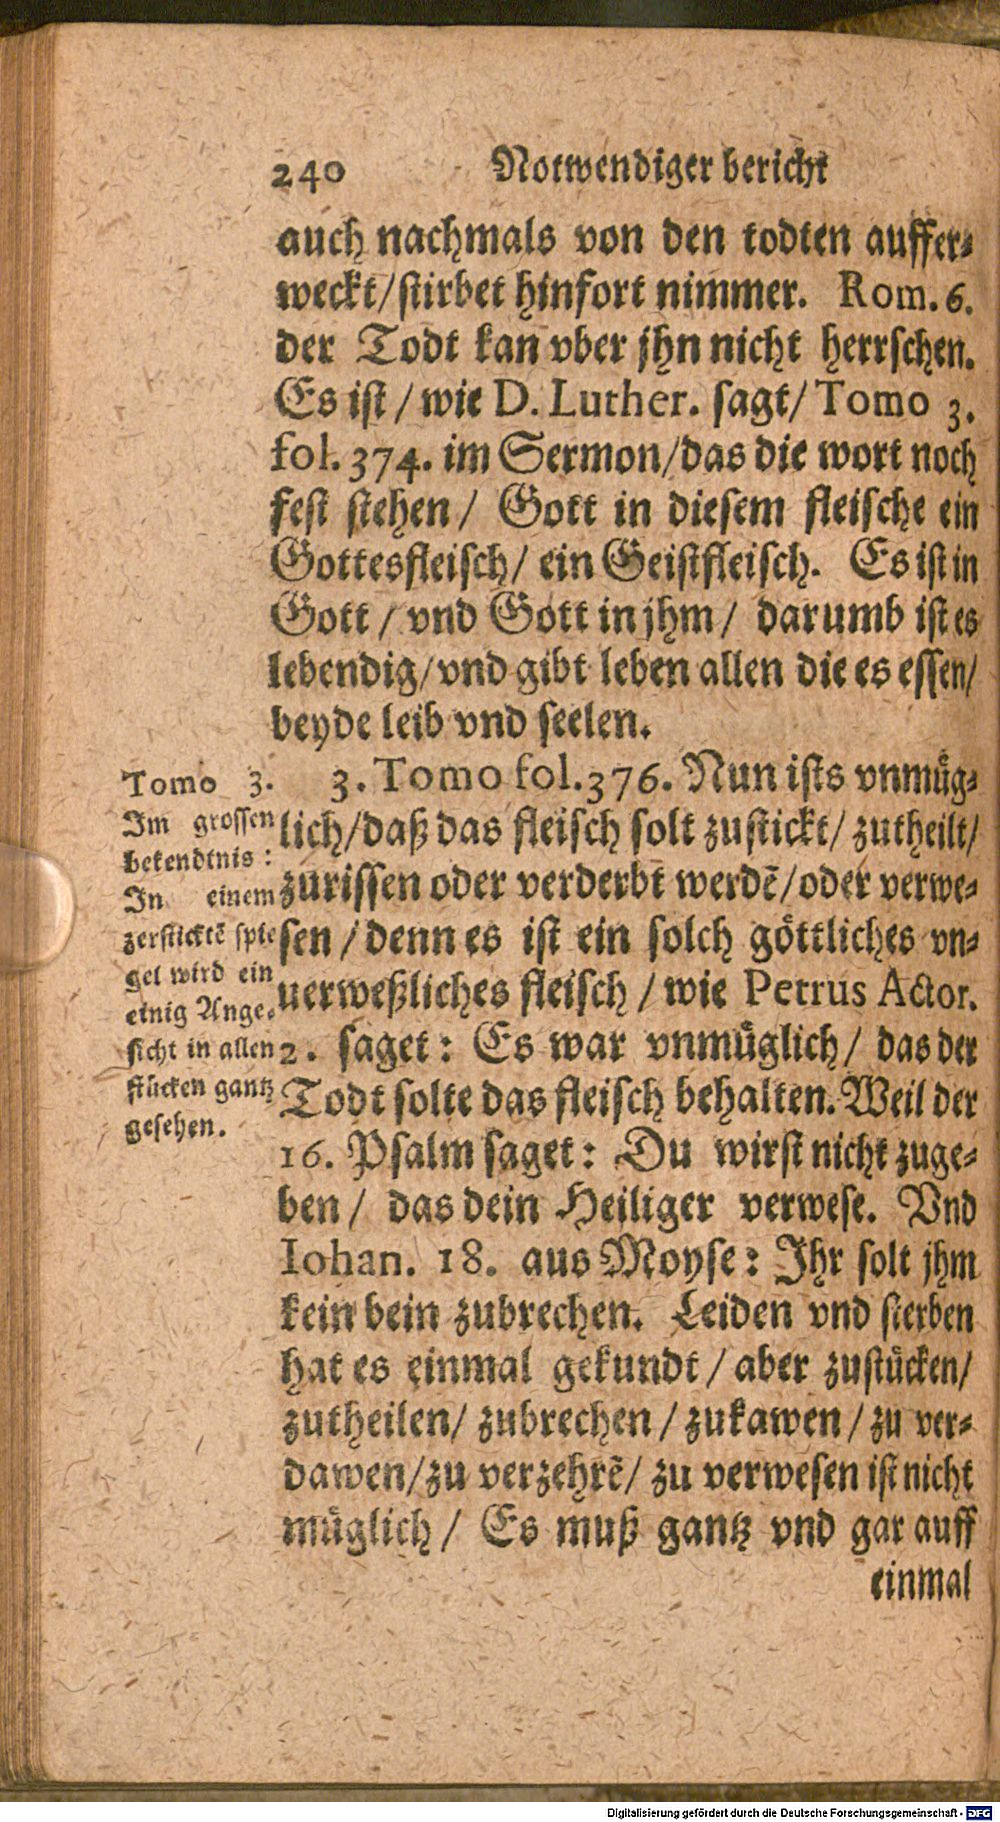 240 Notwendiger bericht
auch nachmals von den todten auffer⸗
weckt/stirbet hinfort nimmer. Rom. 6.
der Todt kan vber jhn nicht herrschen.
Es ist / wie D. Luther. sagt/ Tomo 3.
fol. 374. im Sermon/das die wort noch
fest stehen / Gott in diesem fleische ein
Gottesfleisch/ ein Geistfleisch. Es ist in
Gott / vnd Gott in jhm / darumb ist es
lebendig/vnd gibt leben allen die es essen/
beyde leib vnd seelen.
3. Tomo fol. 376. Nun ists vnmüg⸗
lich/daß das fleisch solt zustickt/ zutheilt/
zurissen oder verderbt werdē/oder verwe⸗
sen / denn es ist ein solch göttliches vn⸗
uerweßliches fleisch / wie Petrus Actor.
2. saget: Es war vnmüglich / das der
Todt solte das fleisch behalten. Weil der
16. Psalm saget: Du wirst nicht zuge⸗
ben / das dein Heiliger verwese. Vnd
Iohan. 18. aus Moyse: Ihr solt jhm
kein bein zubrechen. Leiden vnd sterben
hat es einmal gekundt / aber zustücken/
zutheilen/ zubrechen / zukawen / zu ver⸗
dawen/zu verzehrē/ zu verwesen ist nicht
müglich / Es muß gantz vnd gar auff
einmal
Tomo 3.
Im grossen
bekendtnis:
In einem
zersticktē spie
gel wird ein
einig Ange⸗
sicht in allen
stücken gantz
gesehen.
Digitalisierung gefördert durch die Deutsche Forschungsgemeinschaft - DFG